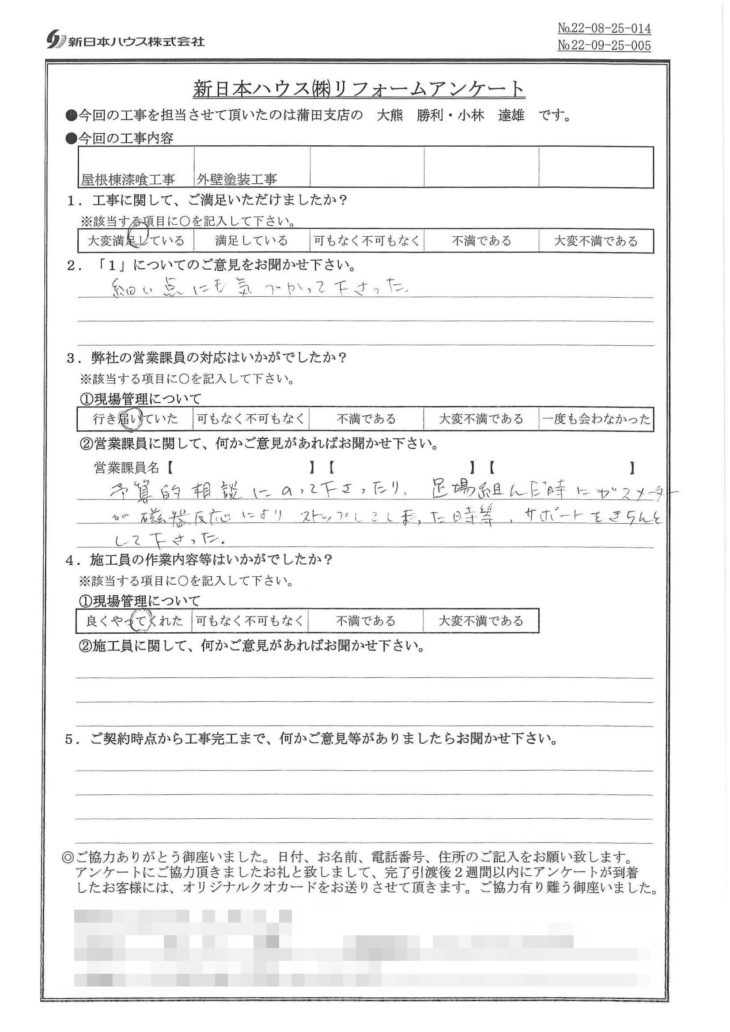 新日本ハウス株式会社
№22-08-25-014
№22-09-25-005
新日本ハウス㈱リフォームアンケート
●今回の工事を担当させて頂いたのは蒲田支店の 大熊 勝利・小林 達雄 です。
●今回の工事内容
屋根棟漆喰工事 外壁塗装工事
1．工事に関して、ご満足いただけましたか？
※該当する項目に○を記入して下さい。
大変満足している 満足している 可もなく不可もなく 不満である 大変不満である
2．「1」についてのご意見をお聞かせ下さい。
細い点にも気づかって下さった。
3．弊社の営業課員の対応はいかがでしたか？
※該当する項目に○を記入して下さい。
①現場管理について
行き届いていた 可もなく不可もなく 不満である 大変不満である 一度も会わなかった
②営業課員に関して、何かご意見があればお聞かせ下さい。
営業課員名【 】【 】【 】
予算的相談にのって下さったり、足場組んだ時にガスメーター
が磁器反応により ストップしてしまった時等、サポートをきちんと
して下さった。
4．施工員の作業内容等はいかがでしたか？
※該当する項目に○を記入して下さい。
①現場管理について
良くやってくれた 可もなく不可もなく 不満である 大変不満である
②施工員に関して、何かご意見があればお聞かせ下さい。
5．ご契約時点から工事完工まで、何かご意見等がありましたらお聞かせ下さい。
◎ご協力ありがとう御座いました。日付、お名前、電話番号、住所のご記入をお願い致します。
アンケートにご協力頂きましたお礼と致しまして、完了引渡後２週間以内にアンケートが到着
したお客様には、オリジナルクオカードをお送りさせて頂きます。ご協力有り難う御座いました。